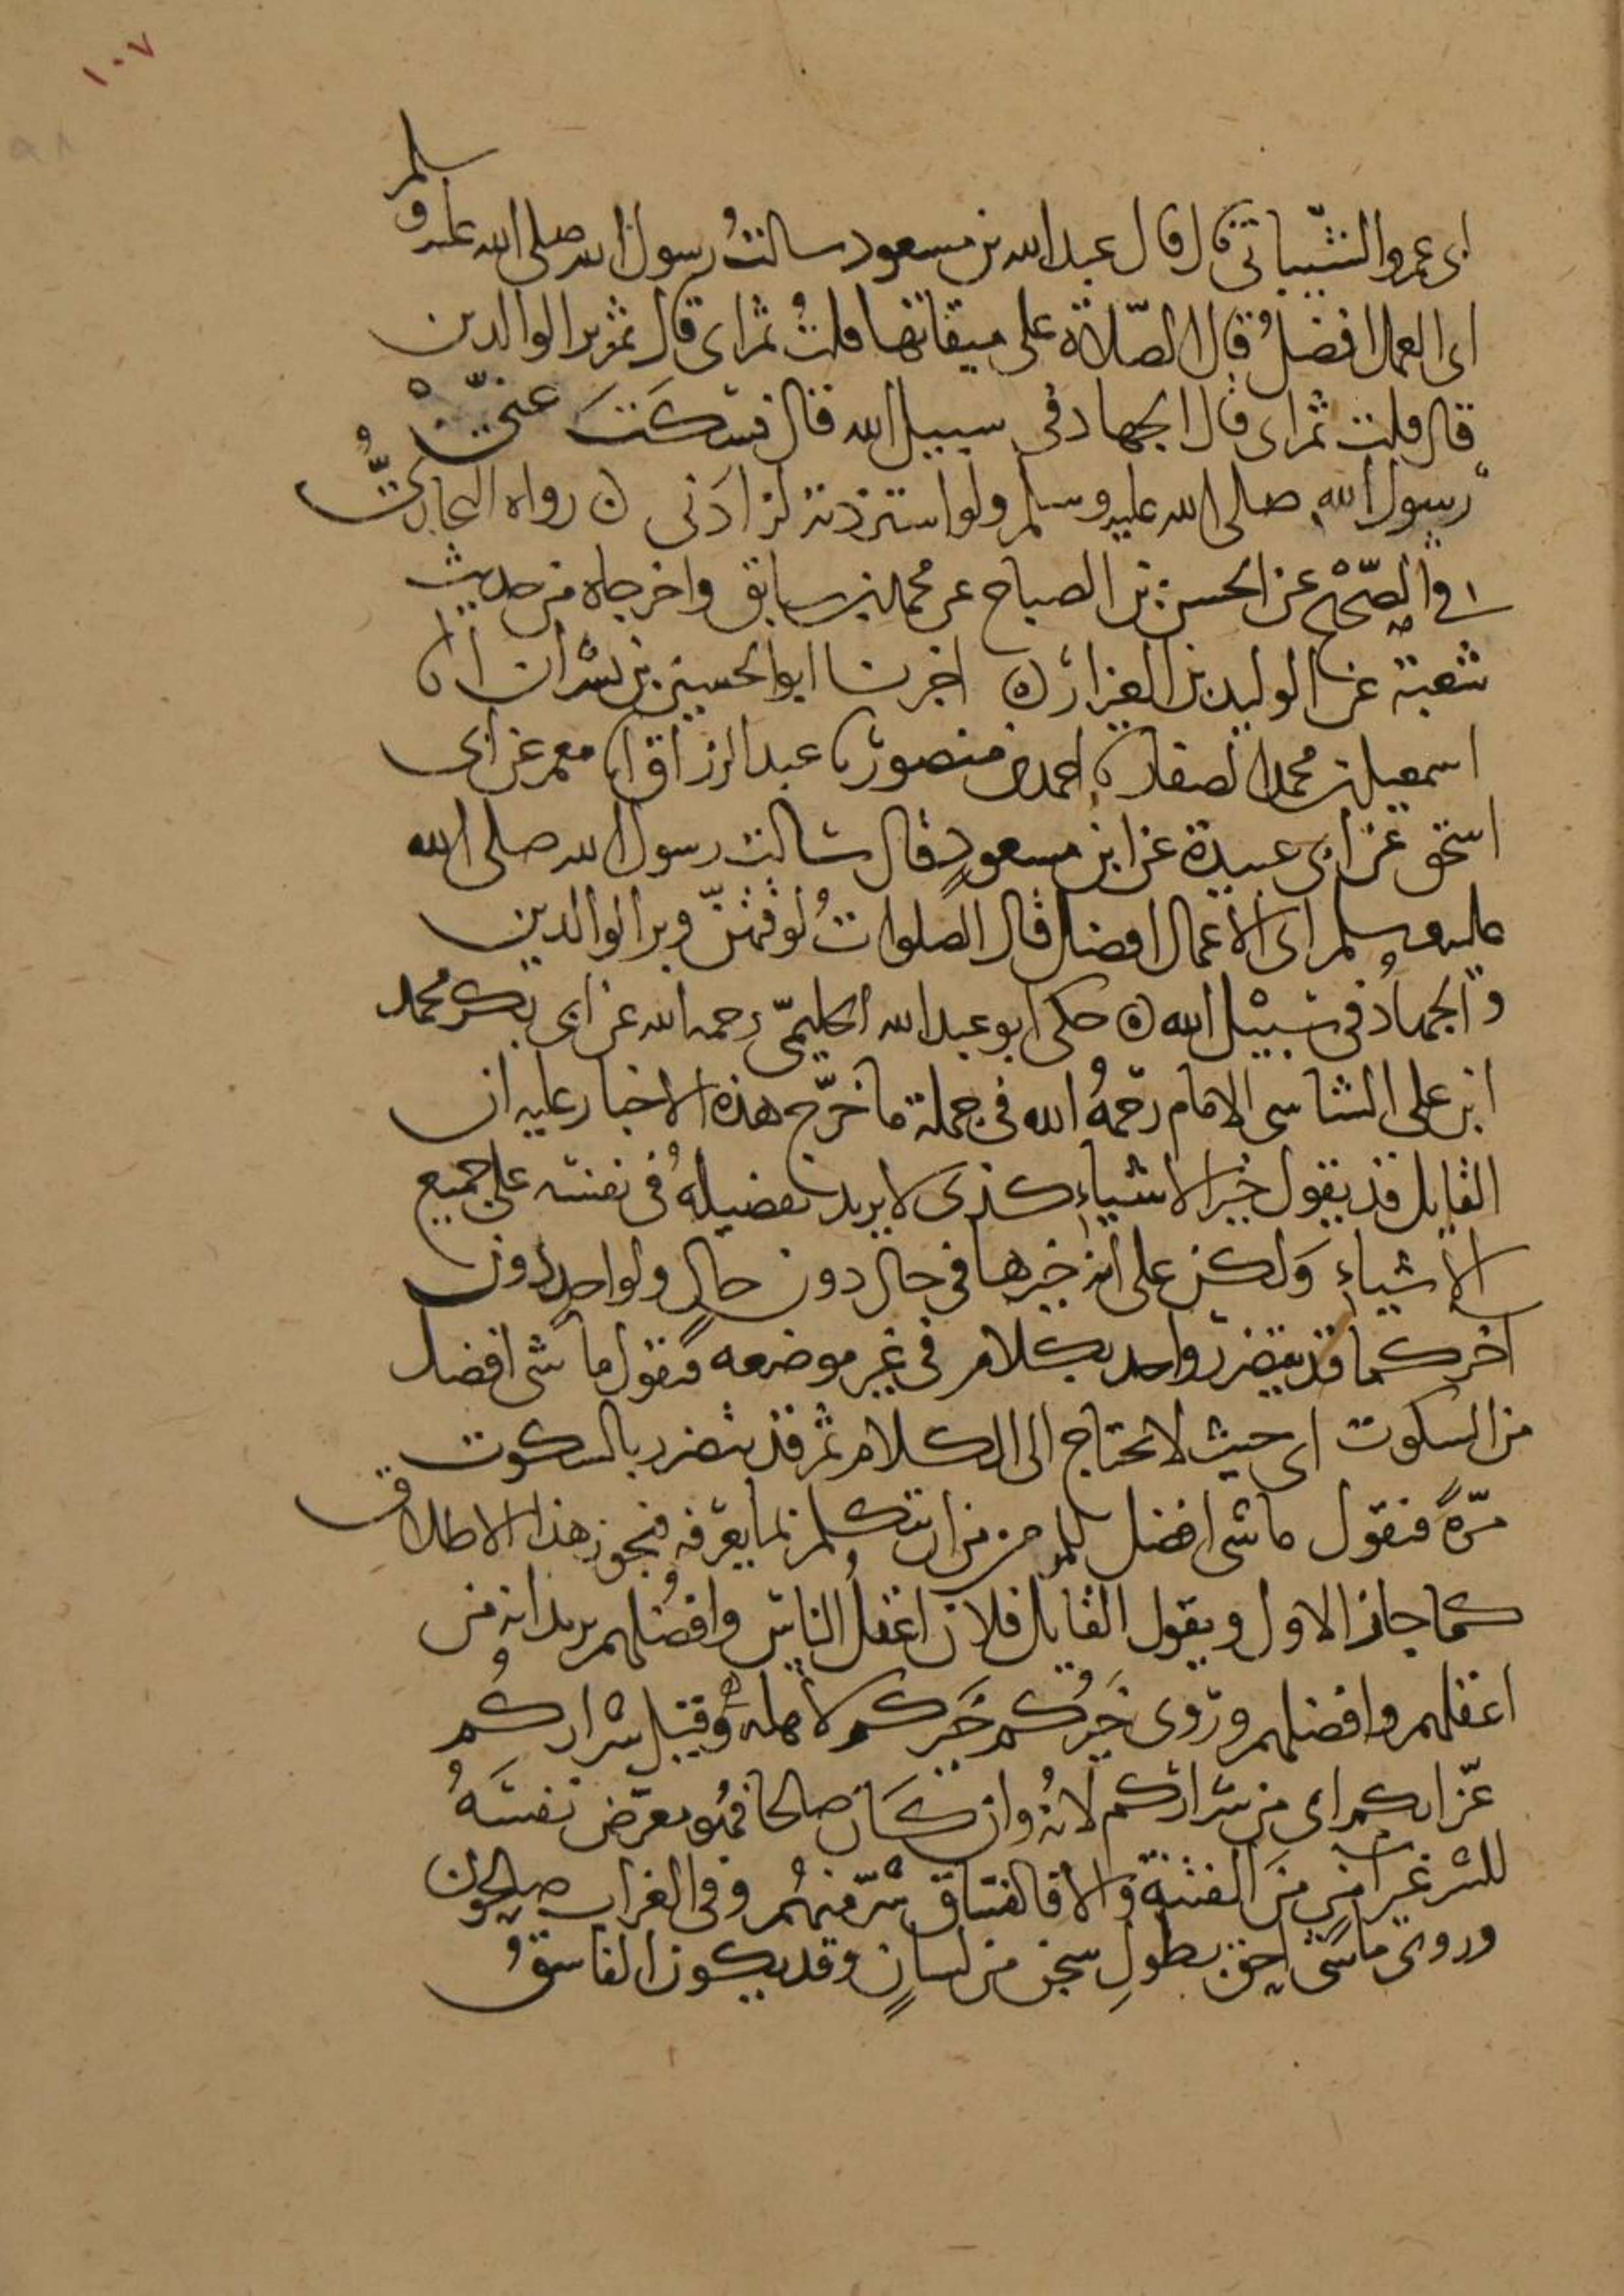 ١٠٧
ابى عمرو الشيبانى قال قال عبد الله بن مسعود سالتُ رسول الله صلى الله عليه وسلم
اى العمل افضلُ قال الصّلاة على ميقاتها قلتُ ثم اى قال ثم بر الوالدين
قال قلت ثم اى قال الجهاد فى سبيل الله قال فسكتَ عنّى
رسول الله صلى الله عليه وسلم ولو استزدته لزادنى ن رواه البخاريُّ
فى الصّحيح عن الحسن بن الصباح عن محمد بن سابق واخرجاه من حديث
شعبة عن الوليد بن العيزار ن اخبرنا ابو الحسين بن بشران انا
اسمعيل بن محمد الصفار نا احمد بن منصور نا عبد الرزاق انا معمر عن ابى
اسحق عن ابى عبيدة عن ابن مسعودٍ قال سالت رسول الله صلى الله
عليه وسلم اى الاعمال افضل قال الصلواتُ لوقتهنّ وبر الوالدين
والجهادُ فى سبيل الله ن حكى ابو عبد الله الحليمىّ رحمه الله عن ابى بكر محمد
ابن على الشاشى الامام رحمهُ الله فى جملة ما خرّج هذه الاخبار عليه ان
القايل قد يقول خير الاشياءِ كذى لا يريد تفضيلهُ فى نفسه على جميع
الاشياءِ وَلكن على انه خيرها فى حال دون حالٍ ولواحدٍ دون
اخر كما قد يتضرر واحد بكلام فى غير موضعه فيقول ما شى افضل
من السكوت اى حيث لا يحتاج الى الكلام ثم قد يتضرر بالسكوت
مرّةً فيقول ما شى افضل للمرء من ان يتكلم بما يعرفه فيجوز هذا الاطلاق
كما جاز الاول ويقول القايل فلان اعقلُ الناس وافضلهم يريد انه من
اعقلهم وافضلهم وروى خيرُكم خيركم لاهله وقيل شراركُم
عزّابكم اى من شراركم لانهُ وان كان صالحا فهُو معرّض نفسَهُ
للشر غير آمنٍ منَ الفتنة والا فالفساق شرّ منهُم وفى العزاب صالحون
وروى ما شى احق بطولِ سجن من لسانٍ وقد يكون الفاسقُ